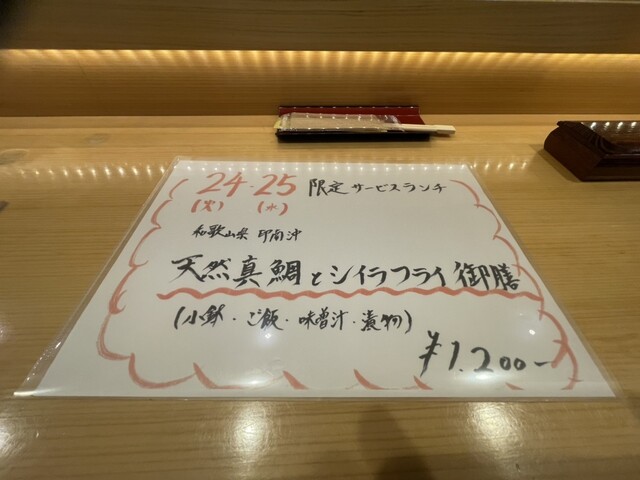 24・25 限定サービスランチ
(火) (水)
和歌山県 印南沖
天然真鯛とシイラフライ御膳
(小鉢・ご飯・味噌汁・漬物)
¥1.200-